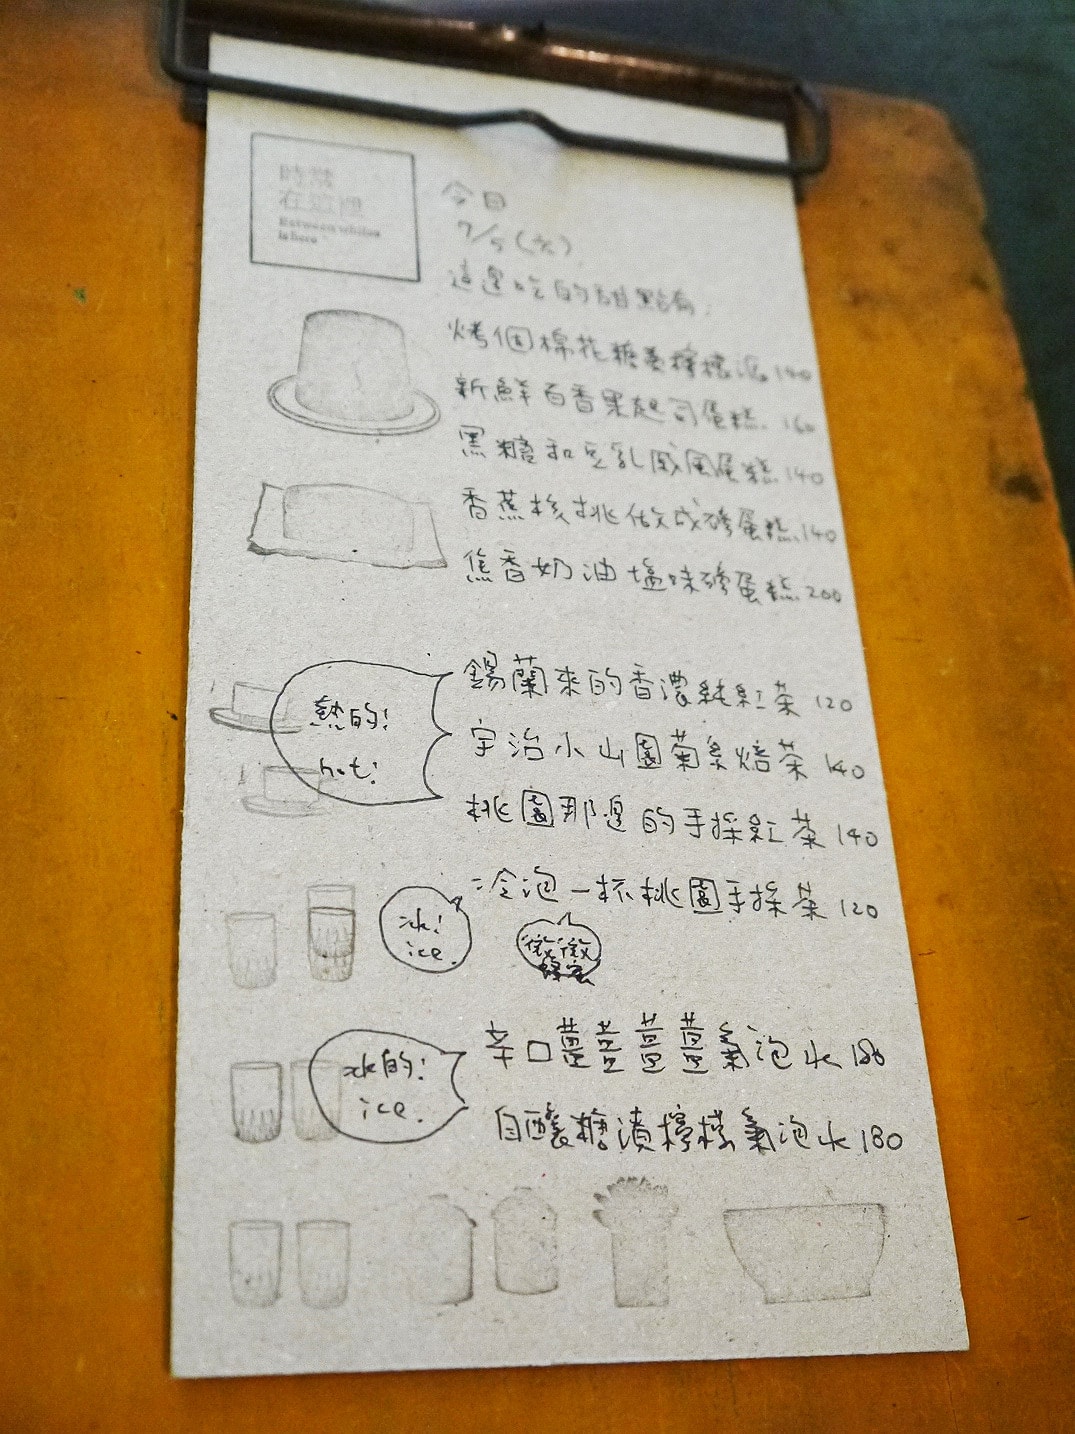 時常
在這裡
Between whiles
is here
今日
7/5(六)
這邊吃的甜點有:
烤個棉花糖蓋檸檬派 140
新鮮百香果起司蛋糕. 160
黑糖和豆乳戚風蛋糕 140
香蕉核桃做成磅蛋糕 140
焦香奶油塩味磅蛋糕 200
熱的!
hot!
錫蘭來的香濃純紅茶 120
宇治小山園菊系焙茶 140
桃園那邊的手採紅茶 140
冰!
ice.
冷泡一杯桃園手採茶 120
微微
蜂蜜
冰的!
ice.
辛口薑薑薑薑氣泡水 180
自釀糖漬檸檬氣泡水 180